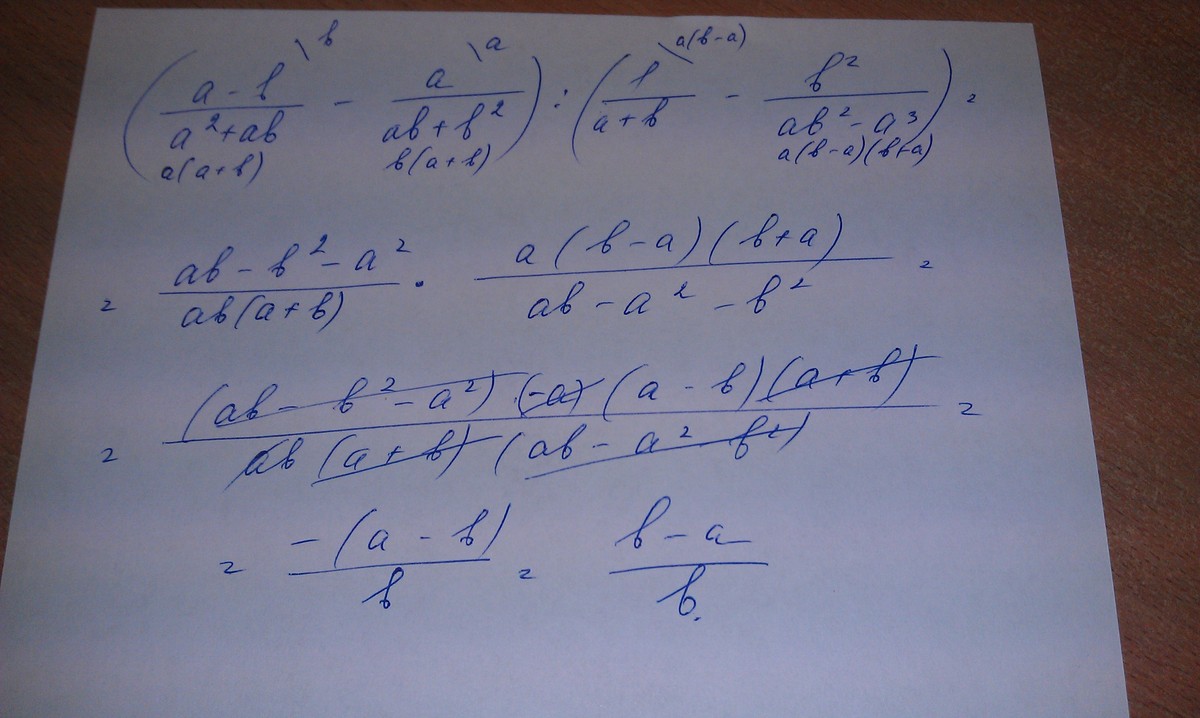 ( (a - b)/(a² + ab) \b - a/(ab + b²) \a ) : ( 1/(a + b) \a(b-a) - b²/(ab² - a³) ) =
a(a+b) b(a+b) a(b-a)(b+a)
= (ab - b² - a²)/(ab(a+b)) · (a(b-a)(b+a))/(ab - a² - b²) =
= ((ab - b² - a²) · (-a)(a - b)(a + b))/(ab(a + b)(ab - a² - b²)) =
= (-(a - b))/b = (b - a)/b.